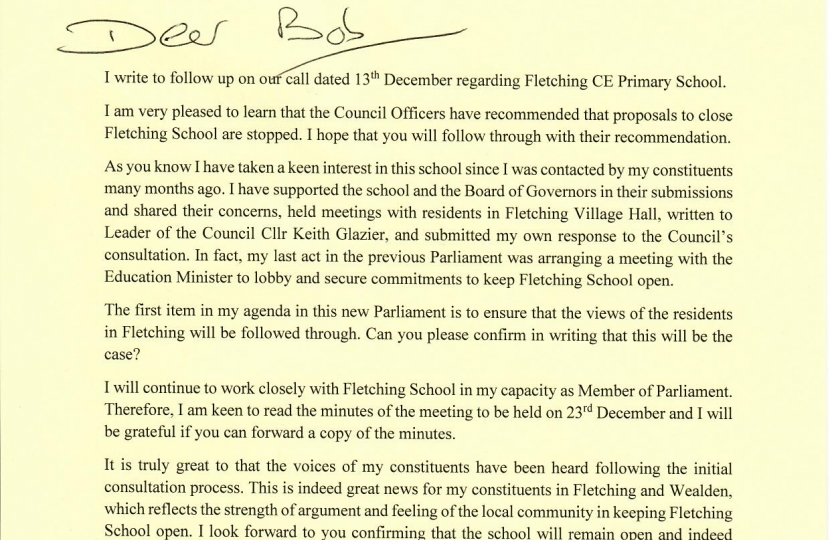 Dear Bob
I write to follow up on our call dated 13th December regarding Fletching CE Primary School.
I am very pleased to learn that the Council Officers have recommended that proposals to close
Fletching School are stopped. I hope that you will follow through with their recommendation.
As you know I have taken a keen interest in this school since I was contacted by my constituents
many months ago. I have supported the school and the Board of Governors in their submissions
and shared their concerns, held meetings with residents in Fletching Village Hall, written to
Leader of the Council Cllr Keith Glazier, and submitted my own response to the Council's
consultation. In fact, my last act in the previous Parliament was arranging a meeting with the
Education Minister to lobby and secure commitments to keep Fletching School open.
The first item in my agenda in this new Parliament is to ensure that the views of the residents
in Fletching will be followed through. Can you please confirm in writing that this will be the
case?
I will continue to work closely with Fletching School in my capacity as Member of Parliament.
Therefore, I am keen to read the minutes of the meeting to be held on 23rd December and I will
be grateful if you can forward a copy of the minutes.
It is truly great to that the voices of my constituents have been heard following the initial
consultation process. This is indeed great news for my constituents in Fletching and Wealden,
which reflects the strength of argument and feeling of the local community in keeping Fletching
School open. I look forward to you confirming that the school will remain open and indeed